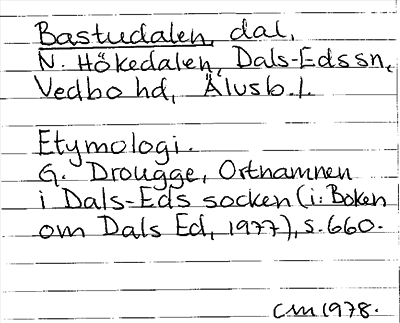 Bastudalen, dal.
N. Hökedalen, Dals-Eds sn,
Vedbo hd, Älvsb. l.
Etymologi.
G. Drougge, Ortnamnen
i Dals-Eds socken (i: Boken
om Dals Ed, 1977), s. 660.
CM 1978.